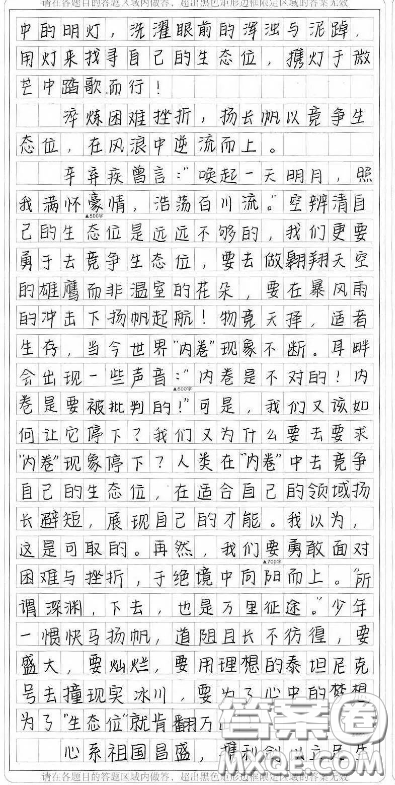 请在各题目的答题区域内做答，超出黑色矩形边框限定区域的答案无效
中的明灯，洗濯眼前的浑浊与泥踔，
用灯来找寻自己的生态位，携灯于微
芒中踏歌而行！
淬炼困难挫折，扬长帆以竞争生
态位，在风浪中逆流而上。
辛弃疾曾言：“唤起一天明月，照
我满怀豪情，浩荡百川流。”空辨清自
▲500字
己的生态位是远远不够的，我们更要
勇于去竞争生态位，要去做翱翔天空
的雄鹰而非温室的花朵，要在暴风雨
的冲击下扬帆起航！物竞天择，适者
生存，当今世界“内卷”现象不断。耳畔
会出现一些声音：“内卷是不对的！内
▲600字
卷是要被批判的！”可是，我们又该如
何让它停下？我们又为什么要去要求
“内卷”现象停下？人类在“内卷”中去竞争
自己的生态位，在适合自己的领域扬
长避短，展现自己的才能。我以为，
这是可取的。再然，我们要勇敢面对
▲700字
困难与挫折，于绝境中向阳而上。“所
谓深渊，下去，也是万里征途。”少年
一惯快马扬帆，道阻且长不彷徨，要
盛大，要灿烂，要用理想的泰坦尼克
号去撞现实冰川，要为了心中的梦想
为了“生态位”就肯翻万
心系祖国昌盛，携利剑以立民生
答案圈
请在各题目的答题区域内做答，超出黑色矩形边框限定区域的答案无效